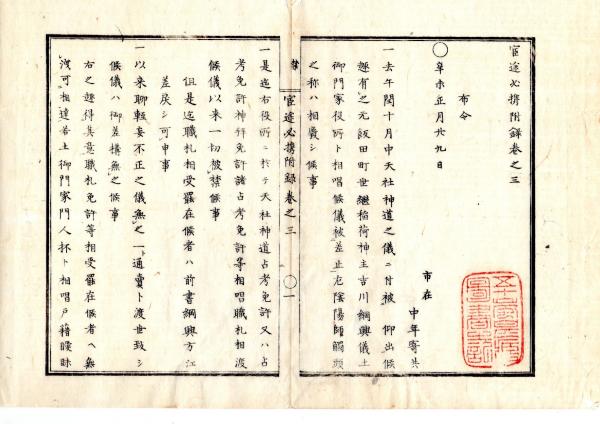 官途必携附録巻之三
布令
○辛未正月廿九日
市在
中年寄共
一去午閏十月中天社神道之儀ニ付被 仰出候
趣有之元飯田町世継稲荷神主吉川綱興儀土
御門家役所ト相唱候儀被差止尤陰陽師觸頭
之称ハ相廃シ候事
官途必携附録巻之三 ○一
一是迄右役所ニ於テ天社神道占考免許又ハ占
考免許神拜免許諸占考免許等相唱職札相渡
候儀以来一切被禁候事
但是迄職札相受罷在候者ハ前書綱興方江
差戻シ可申事
一以来聊軽妄不正之儀無之一ト通賣ト渡世致シ
候儀ハ御差構無之候事
右之趣得其意職札免許等相受罷在候者ヘ無
洩可相達若土御門家門人抔ト相唱戸籍曖昧